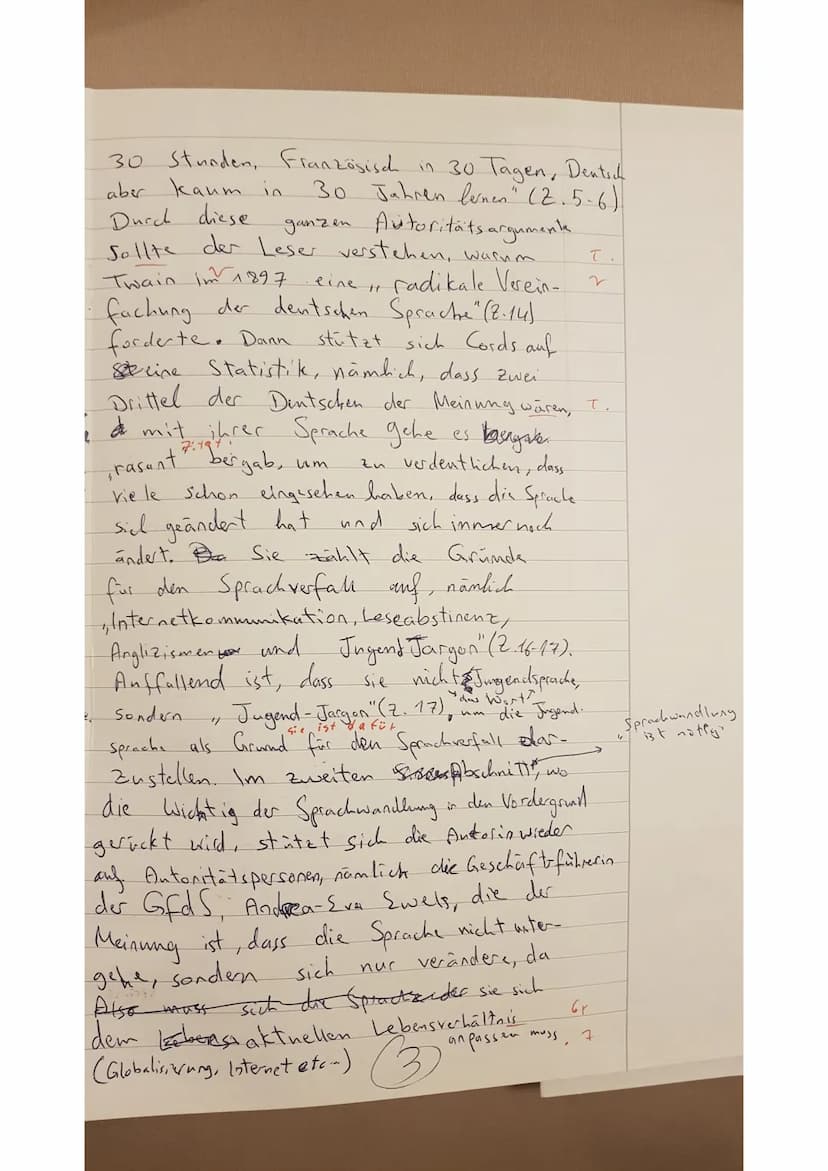 30 Stunden, Französisch in 30 Tagen, Deutsch
aber kaum in 30 Jahren lernen" (Z.5-6)
Durch diese ganzen Autoritätsargumente
sollte der Leser verstehen, warum T.
Twain im 1897 eine „radikale Verein-
fachung der deutschen Sprache" (Z.14)
forderte. Dann stützt sich Cords auf
eine Statistik, nämlich, dass zwei
Drittel der Deutschen der Meinung wären, T.
mit ihrer Sprache gehe es
Zitat!
„rasant bergab, um zu verdeutlichen, dass
viele schon eingesehen haben, dass die Sprache
sich geändert hat und sich immer noch
ändert. Sie zählt die Gründe
für den Sprachverfall auf, nämlich
„Internetkommunikation, Leseabstinenz,
Anglizismen und Jugend Jargon" (Z.16-17).
Auffallend ist, dass sie nicht Jugendsprache,
das Wort
sondern „Jugend-Jargon" (Z. 17), um die Jugend-
sie ist dafür
sprache als Grund für den Sprachverfall dar-
Sprachwandlung
ist nötig
zustellen. Im zweiten Abschnitt, wo
die Wichtig der Sprachwandlung in den Vordergrund
gerückt wird, stützt sich die Autorin wieder
auf Autoritätspersonen, nämlich die Geschäftsführerin
der GfdS, Andrea-Eva Ewels, die der
Meinung ist, dass die Sprache nicht unter-
gehe, sondern sich nur verändere, da
Also muss sich die Sprache der sie sich
dem aktuellen Lebensverhältnis Gr
anpassen muss. 7
(Globalisierung, Internet etc--) 3